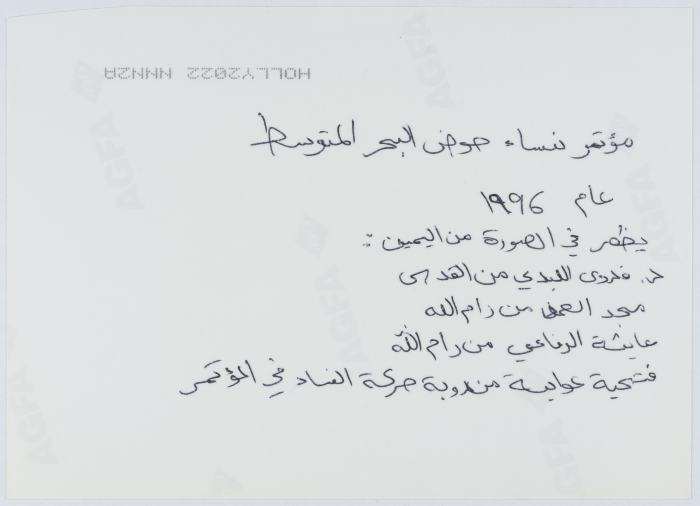 HOLLY2022 NNNZA
مؤتمر نساء حوض البحر المتوسط
عام 1996
يظهر في الصورة من اليمين:
د. فدوى اللبدي من القدس
مجد من رام الله
عايشة الرفاعي من رام الله
فتحية مندوبة حركة النساء في المؤتمر
AGFA
AGFA
AGFA
AGFA
AGFA
AGFA